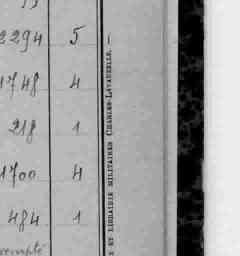 2294 5
1748 4
218 1
1700 4
484 1
ET LIBRAIRIE MILITAIRES CHARLES-LAVAUZELLE. —